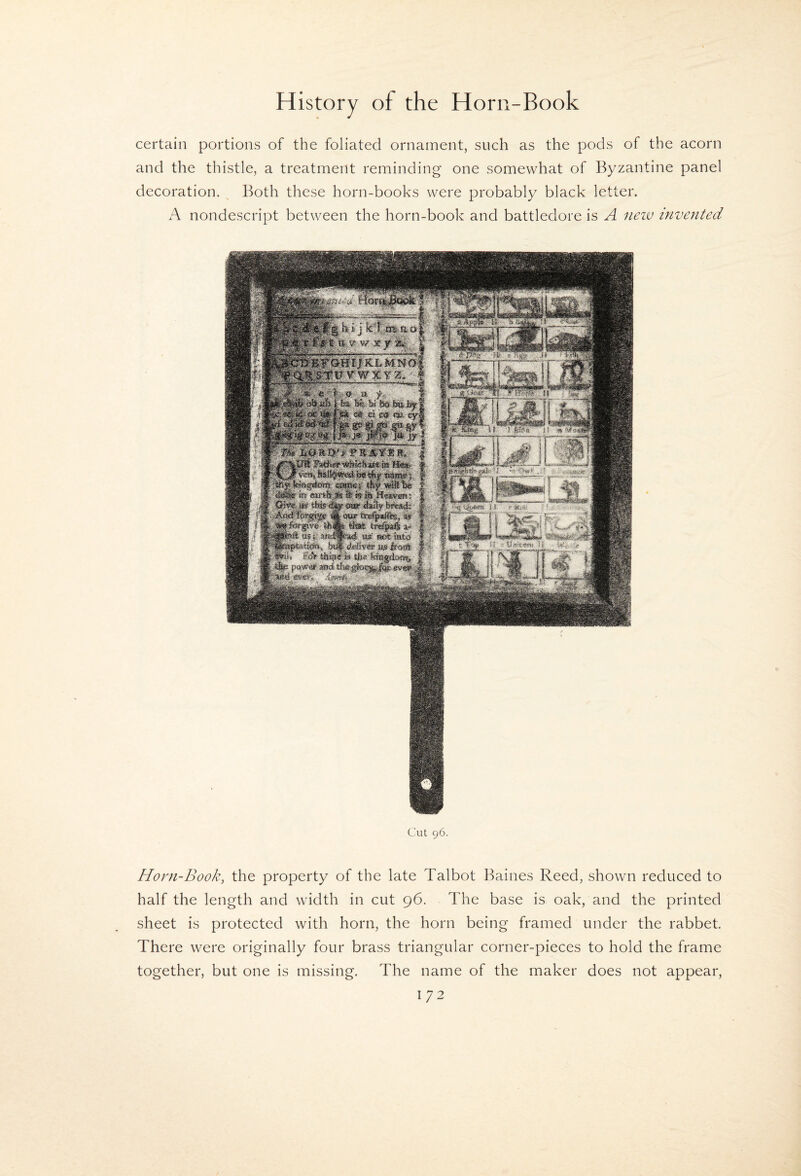 History of the Horn-Book
certain portions of the foliated ornament, such as the pods of the acorn
and the thistle, a treatment reminding one somewhat of Byzantine panel
decoration. Both these horn-books were probably black letter.
A nondescript between the horn-book and battledore is A new invented
Horn Book
g h i j k l m n o
u v w x y z
GHIJKLMNO
STUVWXYZ.
a e i o u y
ba be bi bo bu by
ca ce ci co cu cy
ga ge gi go gu gy
ja je ji jo ju jy
The LORD's PRAYER.
OUR Father which art in Hea-
ven, hallowed be thy name;
thy kingdom come; thy will be
done in earth as it is in Heaven:
Give us this day our daily bread:
And forgive us our trespasses, as
we forgive them that trespass a-
gainst us; and lead us not into
temptation, but deliver us from
evil. For thine is the kingdom,
the power and the glory, for ever
and ever. Amen.
a Apple
d Dog
g Goat
k King
Owl
q Queen
t Top
Unicorn
Cut 96.
Horn-Book, the property of the late Talbot Baines Reed, shown reduced to
half the length and width in cut 96. The base is oak, and the printed
sheet is protected with horn, the horn being framed under the rabbet.
There were originally four brass triangular corner-pieces to hold the frame
together, but one is missing. The name of the maker does not appear,
172